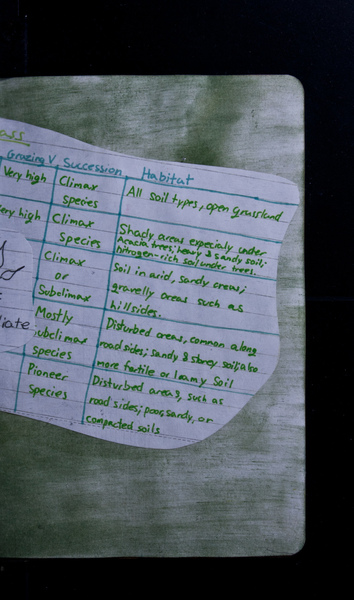 ass
Grazing V. Succession Habitat
Very high Climax Species All soil types, open grassland
Very high Climax Species Shady areas expecialy under
Acacia trees; heavy & sandy soil;
nitrogen-rich soil under trees.
Climax or Subclimax Soil in arid, sandy areas;
gravelly areas such as
hillsides.
Mostly subclimax species Disturbed areas, common along
road sides; sandy & stoney soil; also
more fertile or loamy soil
diate
Pioneer Species Disturbed areas, such as
road sides; poor, sandy, or
compacted soils